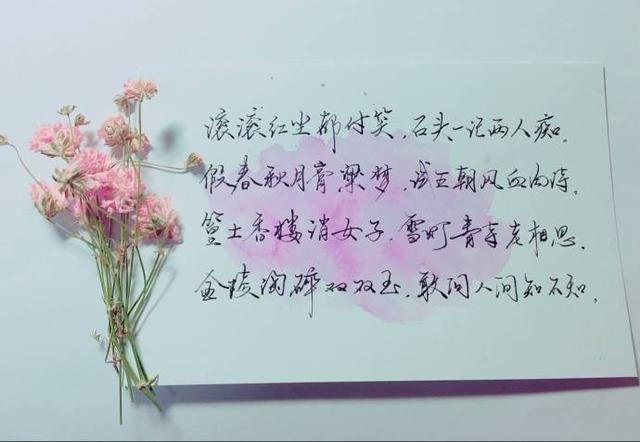 滚滚红尘都付笑,石头一记两人痴。
假春秋月膏粱梦,试王朝风血为诗。
土香楼消女子,雪灯青案老相思。
金陵陶碎双双玉,敢问人间知不知。